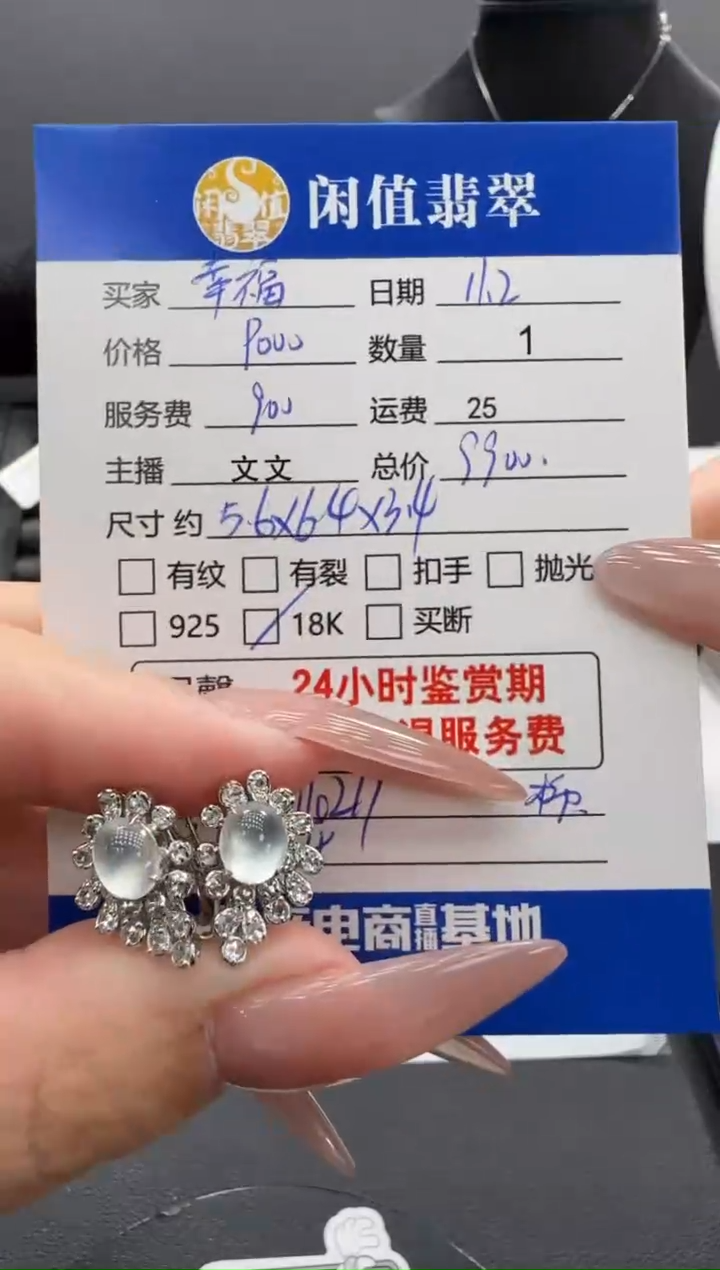 闲值翡翠
闲值翡翠
买家 幸福 日期 11.2
价格 9000 数量 1
服务费 900 运费 25
主播 文文 总价 9900.
尺寸约 5.6x6.4x3.4
有纹 有裂 扣手 抛光
925 18K 买断
24小时鉴赏期
退服务费
电商直播基地